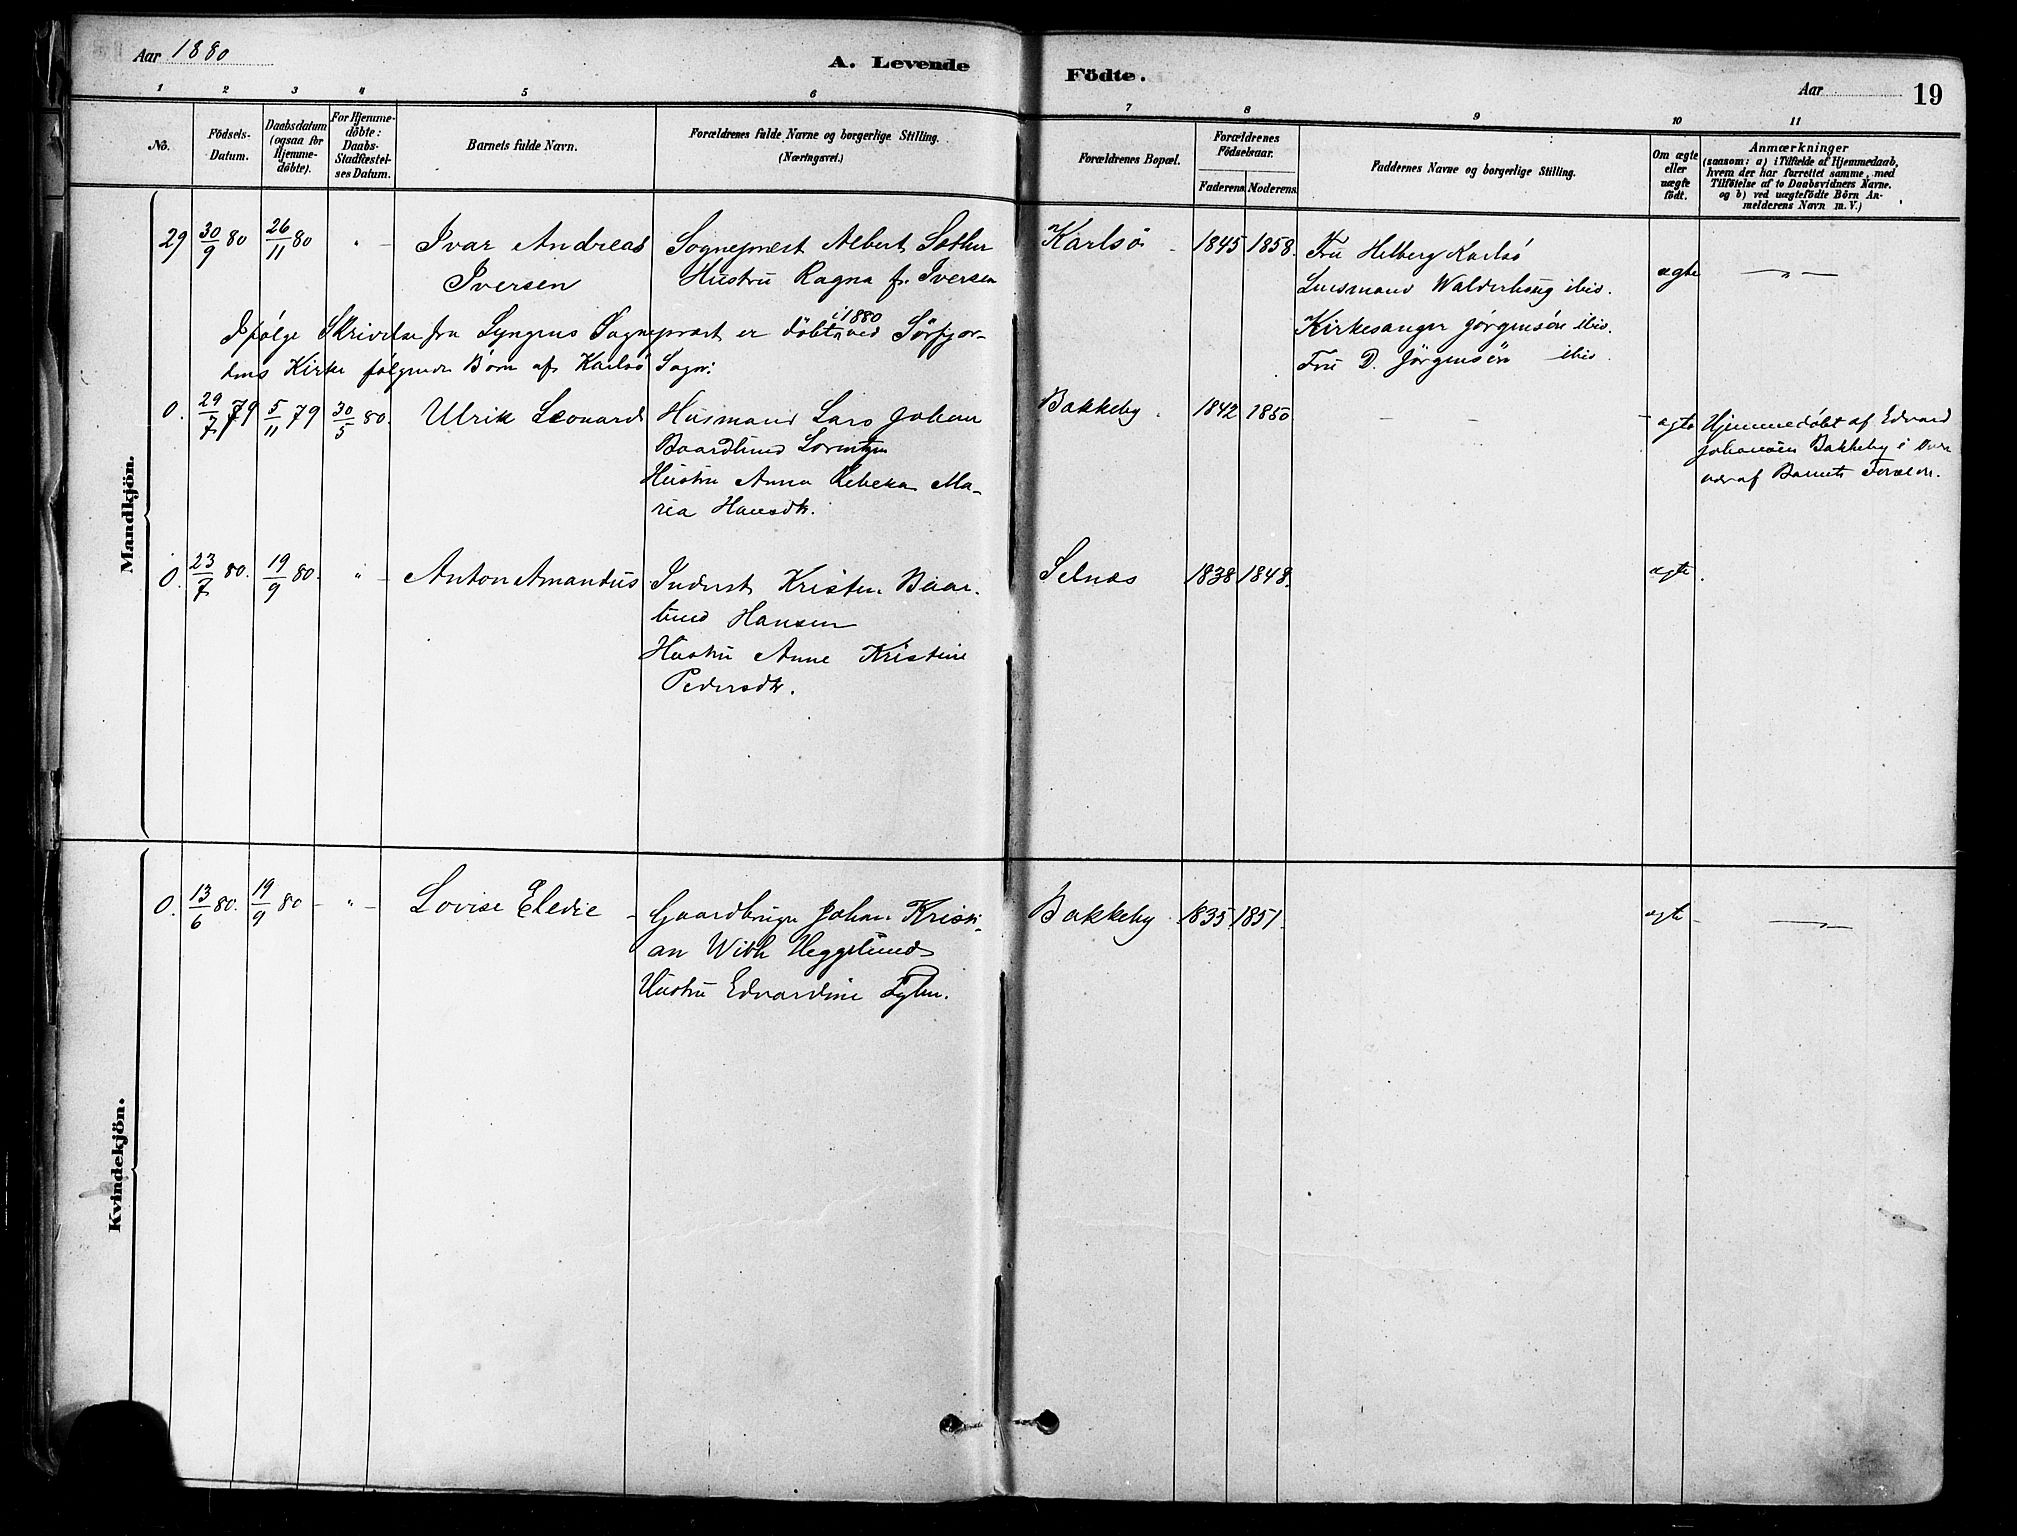 Aar 1880
A. Levende Födte.
Aar
19
1 2 3 4 5 6 7 8 9 10 11
No.
Födsels-Datum.
Daabsdatum (ogsaa for Hjemme-döbte).
For Hjemme-döbte: Daabs-Stadfæstel-ses Datum.
Barnets fulde Navn.
Forældrenes fulde Navne og borgerlige Stilling.
(Næringsvei.)
Forældrenes Bopæl.
Forældrenes Födselsaar.
Faderens. Moderens.
Faddernes Navne og borgerlige Stilling.
Om ægte eller uægte födt.
Anmærkninger
(saasom: a) i Tilfælde af Hjemmedaab,
hvem der har forrettet samme, med
Tilföielse af to Daabsvidners Navne.
og b) ved uægtefödte Börn An-
melderens Navn m. V.)
Mandkjön.
29 30/9 80 26/11 80 " - Ivar Andreas Sogneprest Albert Sæther Karlsö 1845 1858. Fru Helberg Karlsö ægte
Iversen Hustru Ragna f. Iversen Lensmand Walderhaug ibid.
Ifølge Skrivelse fra Lyngens Sogneprest er døbt i 1880 ved Sörfjor- Kirkesanger Jørgensön ibid.
dens Kirke følgende Børn af Karlsö Sogn: Fru D. Jörgensön ibid.
0. 29/7 79 5/11 79 30/5 80. Ulrik Leonard Husmand Lars Johan Bakkeby. 1842 1850 - - - ægte Hjemmedøbt af Edvard
Baardlund Lorentzen Johansen Bakkeby i
Hustru Anna Rebeka Ma- af Barnets Forældre.
ria Hansdtr.
0. 23/7 80. 19/9 80. " - Anton Amandus Inderst Kristen Baar- Selnæs 1838 1848. ægte
lund Hansen
Hustru Anne Kristine
Pedersdtr.
Kvindekjön.
0. 13/6 80. 19/9 80 - " - Lovise Eledie - Gaardbruger Johan Kristi- Bakkeby 1835 1851. ægte
an With Heggelund
Hustru Edvardine